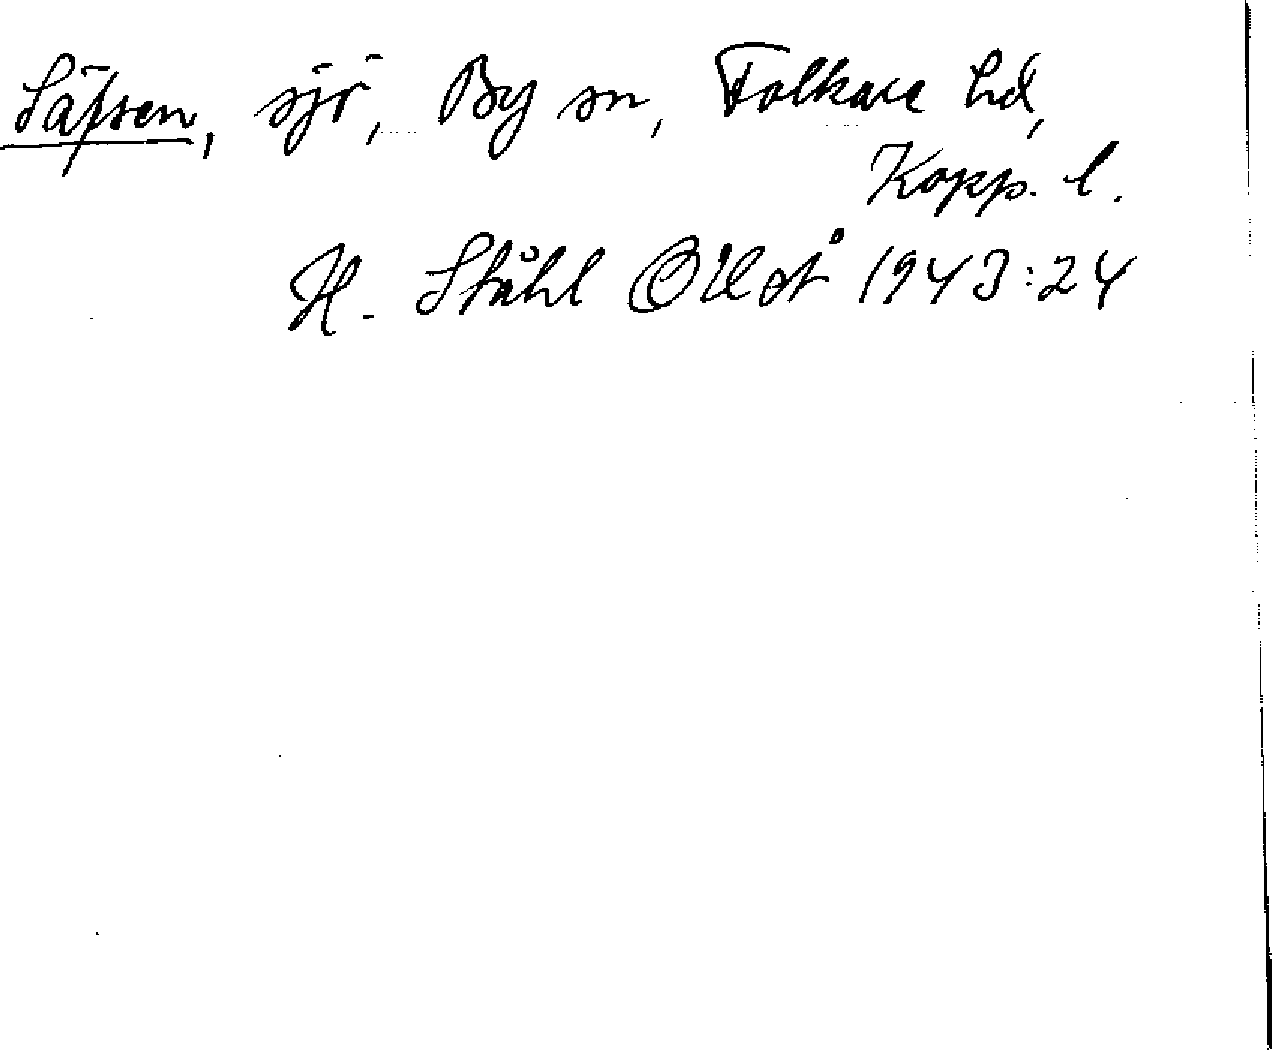 Säfsen, sjö, By sn, Folkare hd,
Kopp. l.
H. Ståhl OUÅ 1943:24